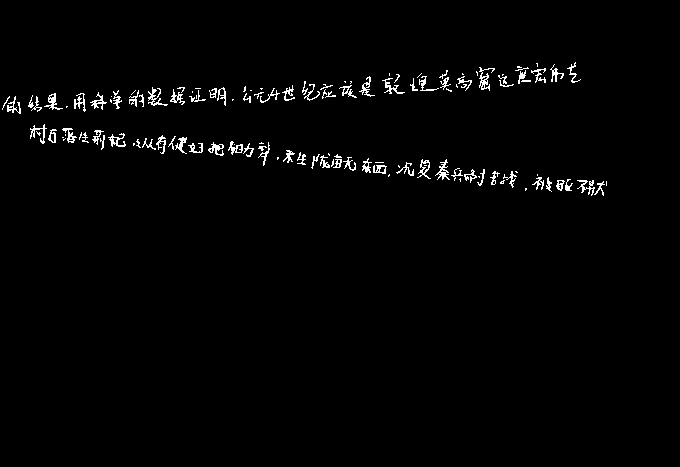 的结果.用科学的数据证明.公元4世纪应该是敦煌莫高窟这座宏伟艺
村万落生荆杞.纵有健妇把锄力犁.禾生陇亩无东西.况复秦兵耐苦战,被驱不异犬